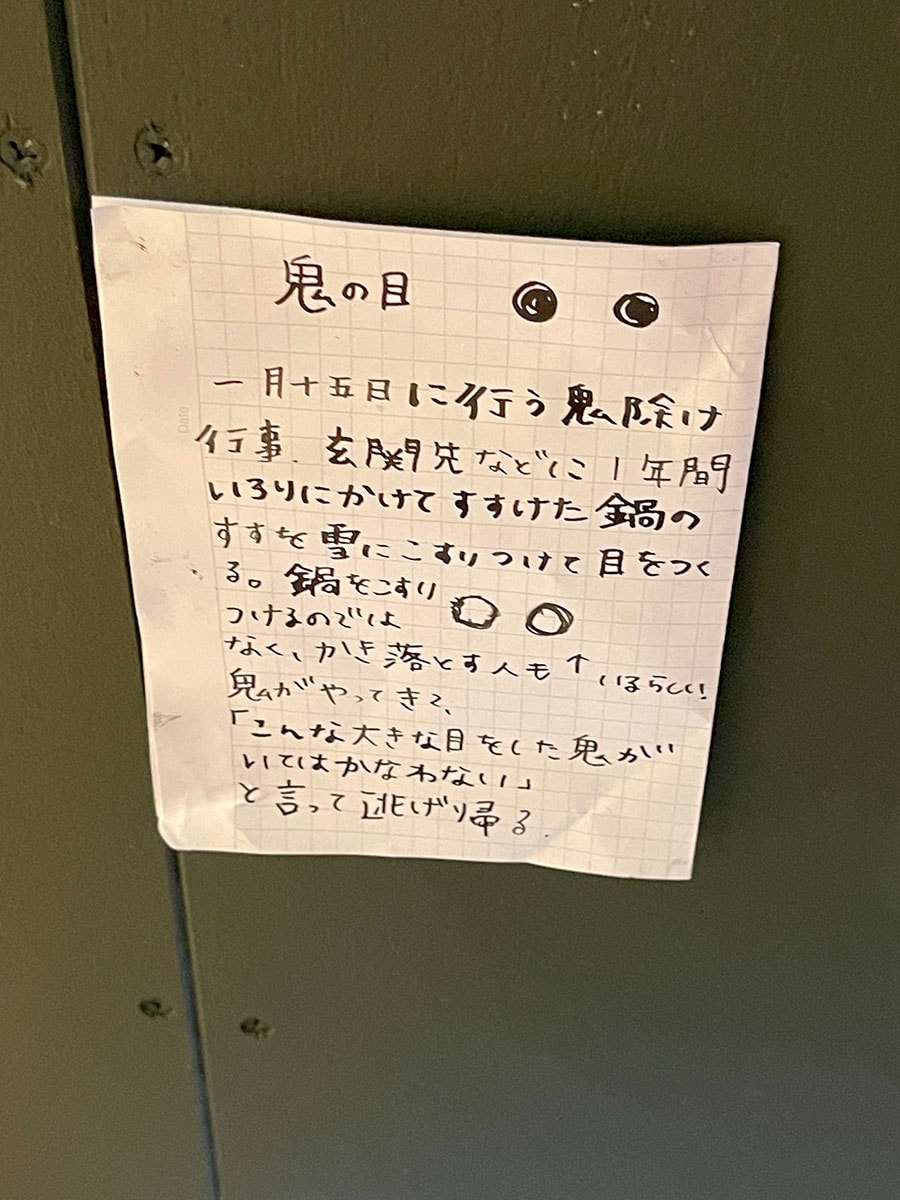 鬼の目
一月十五日に行う鬼除け
行事. 玄関先などに1年間
いろりにかけてすすけた鍋の
すすを雪にこすりつけて目をつく
る。鍋をこすり
つけるのでは
なく、かき落とす人も↑いるらしい!
鬼がやってきて、
「こんな大きな目をした鬼が
いてはかなわない」
と言って逃げり帰る.
Date